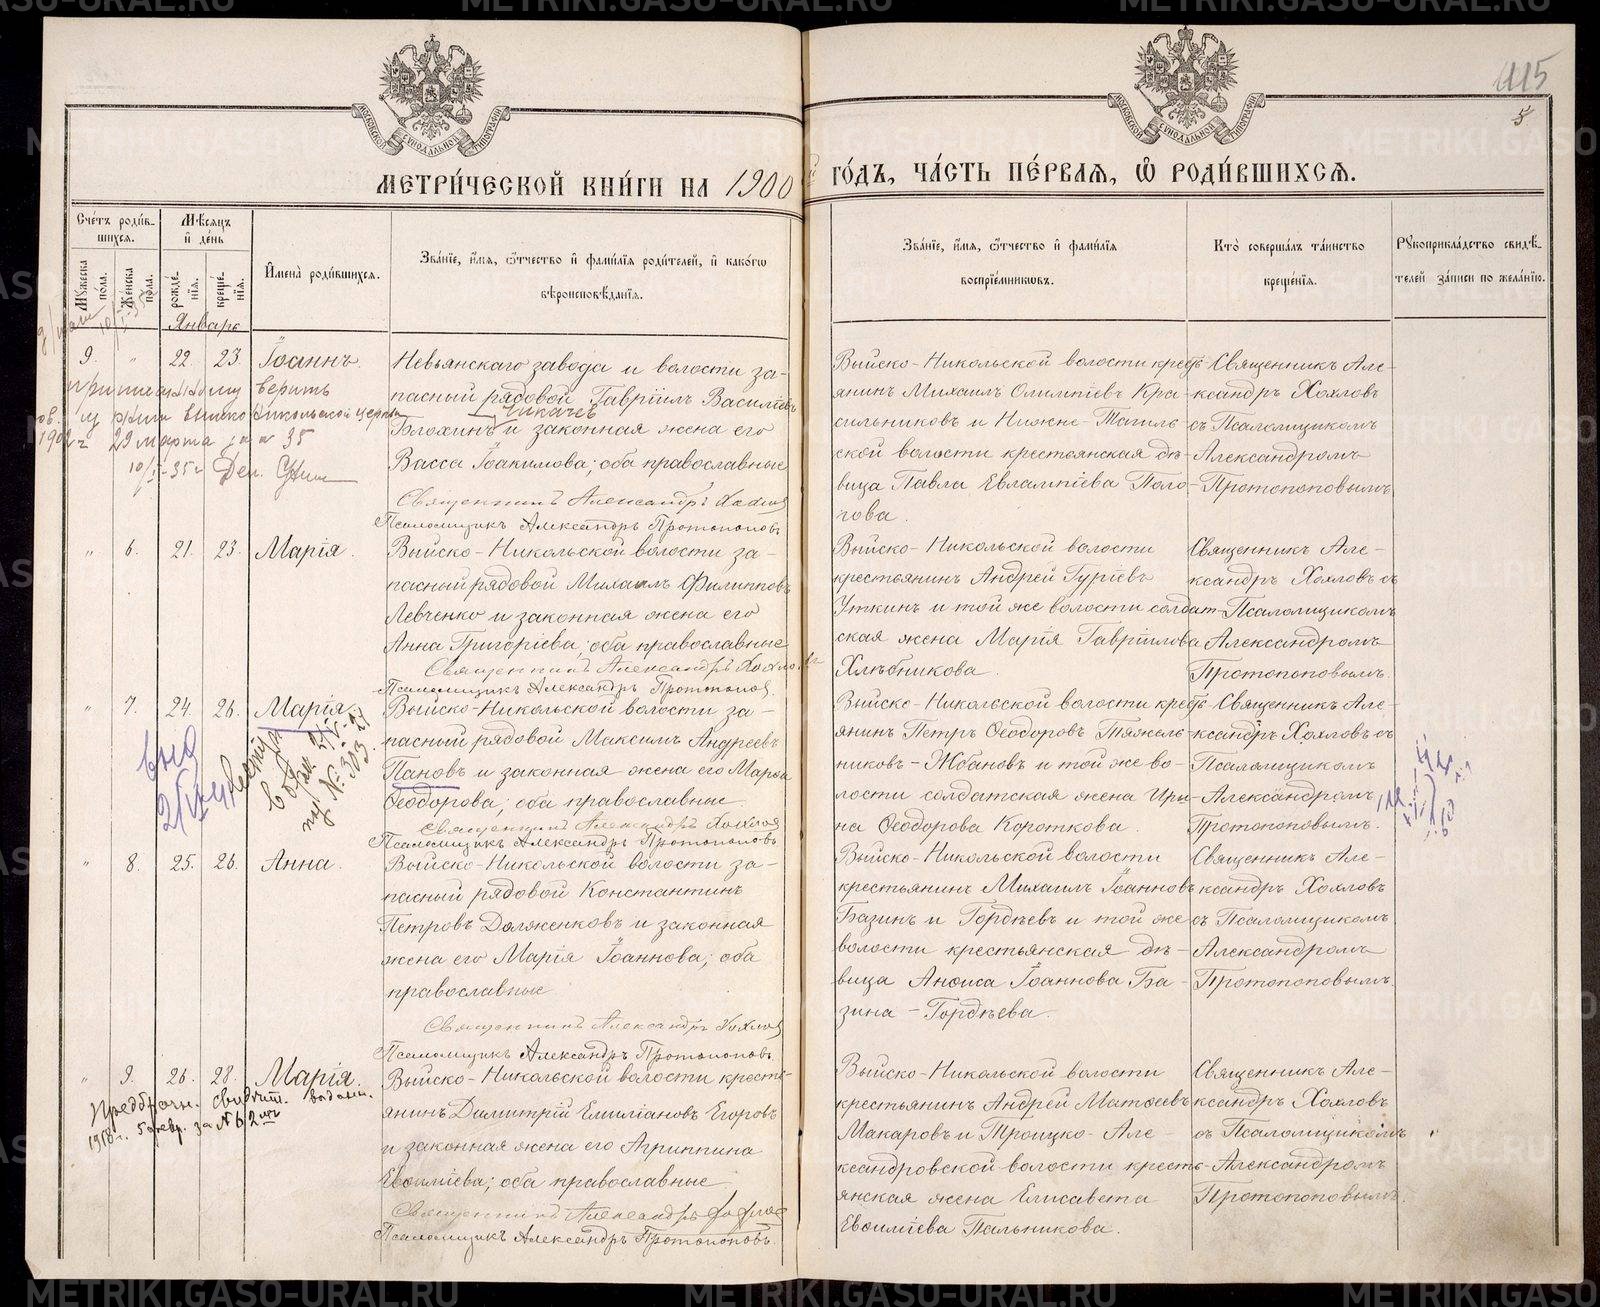 115
5
МОСКОВСКОЙ СУНОДАЛЬНОЙ ТИПОГРАФІИ
МОСКОВСКОЙ СУНОДАЛЬНОЙ ТИПОГРАФІИ
МЕТРИ́ЧЕСКОЙ КНИ́ГИ НА 1900 ГО́ДЪ, ЧА́СТЬ ПЕ́РВАЯ, Ѡ҆ РОДИ́ВШИХСѦ.
Сче́тъ роди́в-
шихсѧ.
Мѣ́сѧцъ
и҆ де́нь
Мꙋ́жеска по́ла.
Же́нска по́ла.
рожде́-
нїѧ.
креще́-
нїѧ.
И҆мена̀ роди́вшихсѧ.
Зва́нїе, и҆́мѧ, ѻ҆́тчество и҆ фами́лїѧ роди́телей, и҆ како́гѡ
вѣроисповѣ́данїѧ.
Зва́нїе, и҆́мѧ, ѻ҆́тчество и҆ фами́лїѧ
воспрїе́мникѡвъ.
Кто̀ соверша́лъ та́инство
креще́нїѧ.
Рꙋкоприкла́дство свидѣ́-
телей за́писи по жела́нїю.
Январь
9. " 22 23. Іоаннъ.
Невьянскаго завода и волости за-
пасный рядовой Гавріилъ Василіевъ
Чикачев
Блохинъ и законная жена его
Васса Іоакимова; оба православные
Священникъ Александръ Хохловъ
Псаломщикъ Александръ Протопоповъ
верить
Николаской церкви
29 марта за № 35
10/I-35 г Дел.
Выйско-Никольской волости кресть-
янинъ Михаилъ Олимпіевъ Кра-
сильниковъ и Нижне-Тагиль-
ской волости крестьянская дѣ-
вица Павла Евлампіева Поло-
гова.
Священникъ Але-
ксандръ Хохловъ
съ Псаломщикомъ
Александромъ
Протопоповымъ
" 6. 21. 23. Марія.
Выйско-Никольской волости за-
пасный рядовой Михаилъ Филипповъ
Левченко и законная жена его
Анна Григоріева; оба православные
Священникъ Александръ Хохловъ
Псаломщикъ Александръ Протопоповъ.
Выйско-Никольской волости
крестьянинъ Андрей Гуріевъ
Уткинъ и той же волости солдат-
ская жена Марія Гавріилова
Хлѣбникова.
Священникъ Але-
ксандръ Хохловъ съ
Псаломщикомъ
Александромъ
Протопоповымъ.
" 7. 24. 26. Марія.
Выйско-Никольской волости за-
пасный рядовой Максимъ Андреевъ
Пановъ и законная жена его Марѳа
Ѳеодорова; оба православные
Священникъ Александръ Хохловъ
Псаломщикъ Александръ Протопоповъ
№ 303
Выйско-Никольской волости кресть-
янинъ Петръ Ѳеодоровъ Тяжель-
никовъ-Жбановъ и той же во-
лости солдатская жена Ири-
на Ѳеодорова Короткова.
Священникъ Але-
ксандръ Хохловъ съ
Псаломщикомъ
Александромъ
Протопоповымъ.
" 8. 25. 26. Анна.
Выйско-Никольской волости за-
пасный рядовой Константинъ
Петровъ Долженковъ и законная
жена его Марія Іоаннова; оба
православные
Священникъ Александръ Хохловъ
Псаломщикъ Александръ Протопоповъ
Выйско-Никольской волости
крестьянинъ Михаилъ Іоанновъ
Базинъ и Гордѣевъ и той же
волости крестьянская дѣ-
вица Анѳиса Іоаннова Ба-
зина-Гордѣева.
Священникъ Але-
ксандръ Хохловъ
съ Псаломщикомъ
Александромъ
Протопоповымъ.
" 9. 26. 28. Марія.
Предбрачн. свидѣт. выдан.
1918 г. 5 февр. за № 62
Выйско-Никольской волости кресть-
янинъ Димитрій Емиліановъ Егоровъ
и законная жена его Агриппина
Евѳиміева; оба православные.
Священникъ Александръ Хохловъ
Псаломщикъ Александръ Протопоповъ.
Выйско-Никольской волости
крестьянинъ Андрей Матѳеевъ
Макаровъ и Троицко-Але-
ксандровской волости кресть-
янская жена Елисавета
Евѳиміева Пальникова.
Священникъ Але-
ксандръ Хохловъ
съ Псаломщикомъ
Александромъ
Протопоповымъ.
METRIKI.GASO-URAL.RU